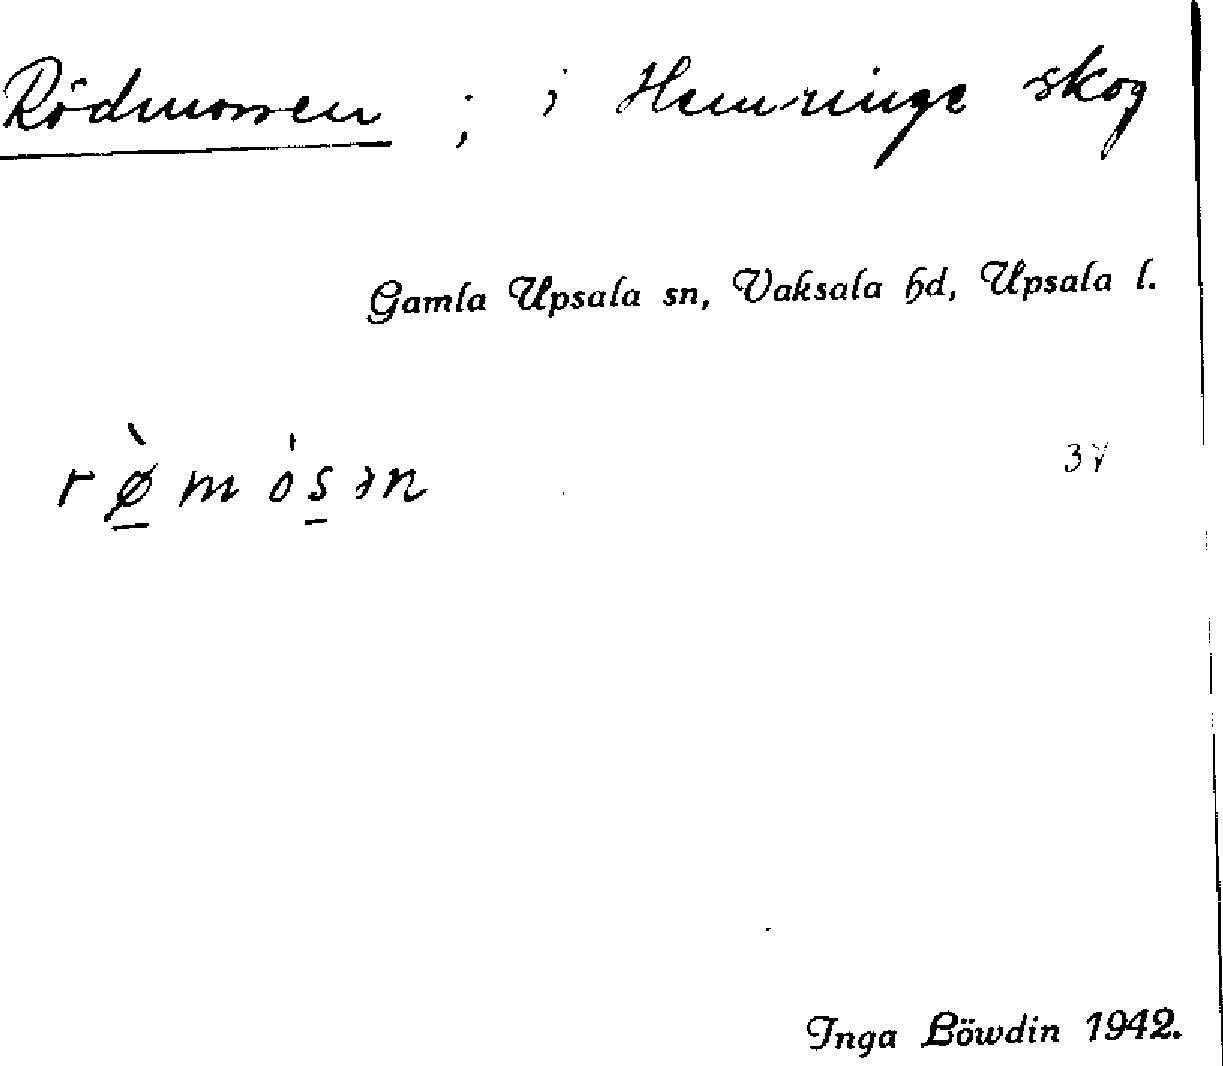 Rödmossen ; i Hemringe skog
Gamla Upsala sn, Vaksala hd, Upsala l.
rø̠̀mós̠ən
Inga Löwdin 1942.